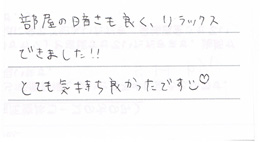 部屋の暗さも良く、リラックス
できました!!
とても気持ち良かったです♡